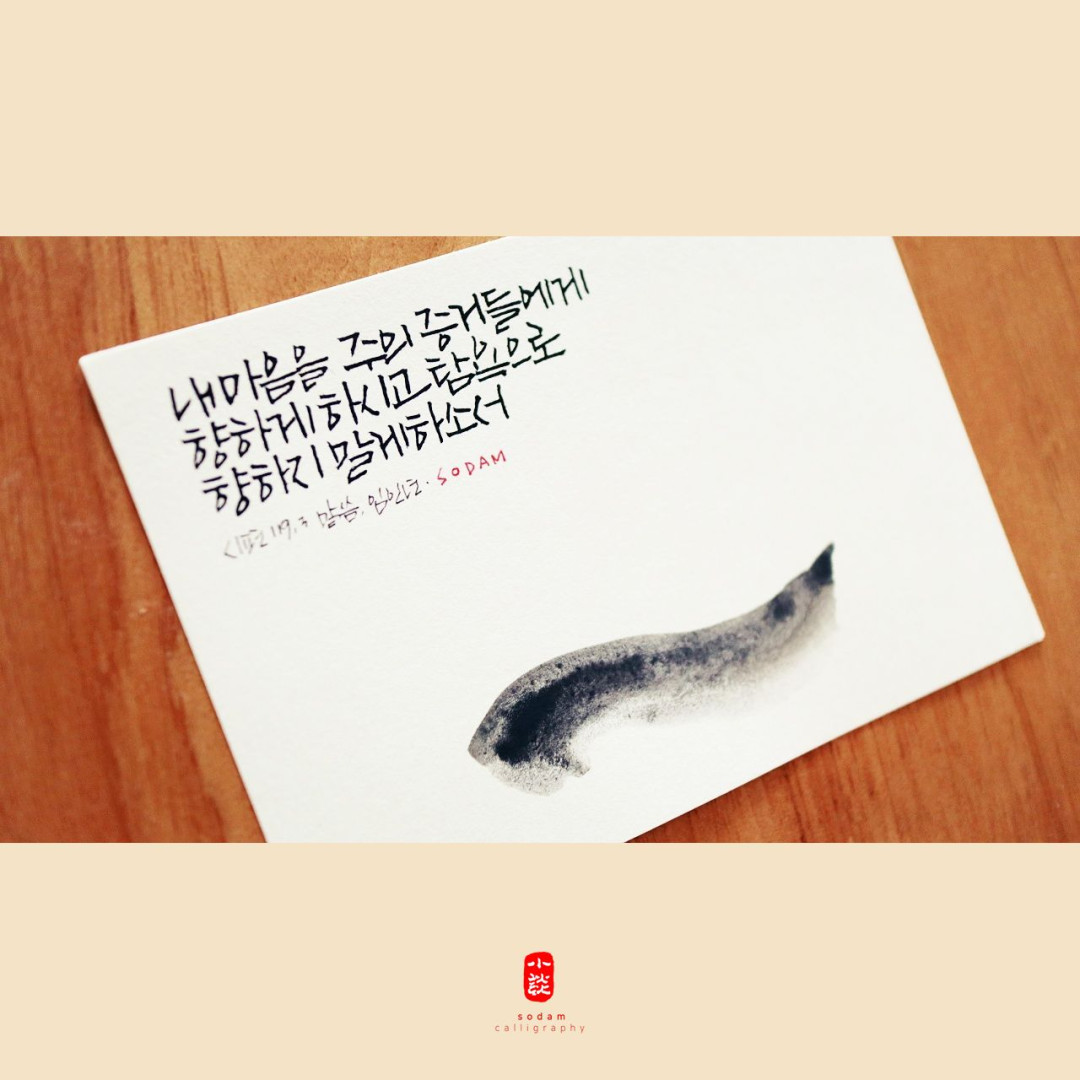 내마음을 주의 증거들에게
향하게하시고 탐욕으로
향하지 말게하소서
시편 말씀. 임인년. SODAM
小談
sodam
calligraphy